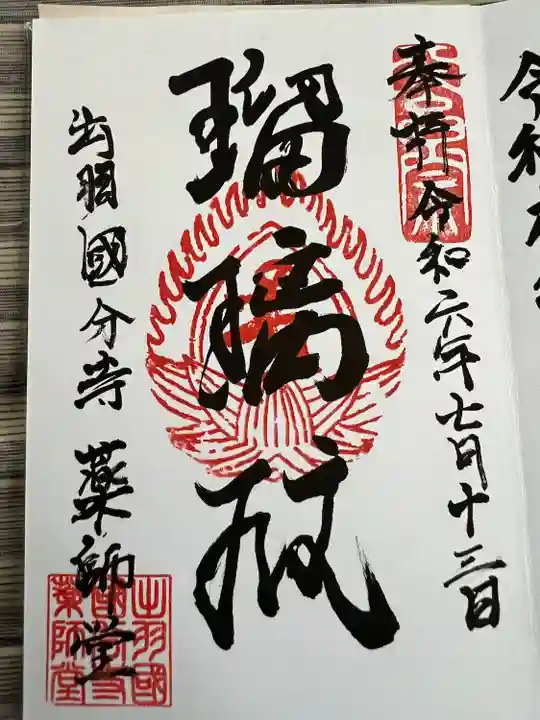 令和
奉拝 令和六年七月十三日
瑠璃殿
出羽國分寺 薬師堂
出羽國
國分寺
薬師堂